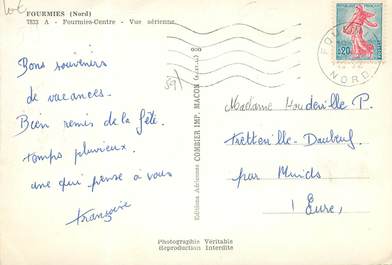 FOURMIES (Nord)
7833 A - Fourmies-Centre - Vue aérienne.
Bons souvenirs
de vacances.
Bien remis de la fête.
temps pluvieux.
une qui pense à vous
Françoise
Editions Aériennes COMBIER IMP. MACON
0,20
NORD
Madame P.
par Muids
Eure,
Photographie Véritable
Reproduction Interdite